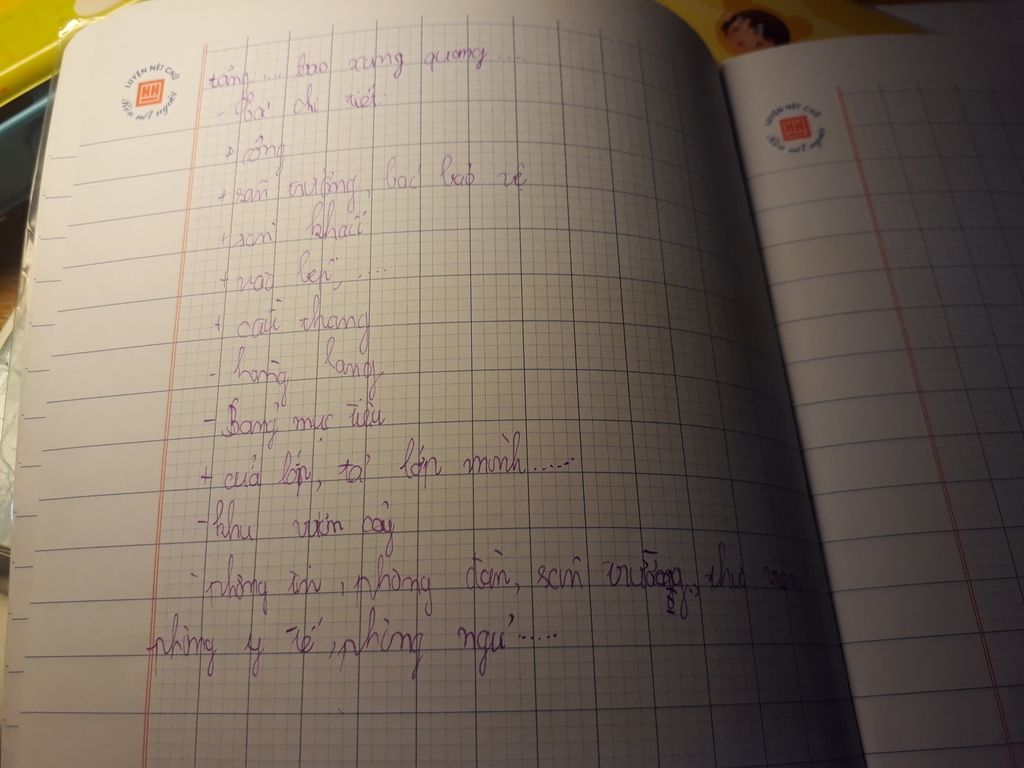 tầng ... bao xung quang ....
- Tả chi tiết
+ cổng
+ sân trường, bác bảo vệ
+ sân khấu
+ vào bếp, ....
+ cầu thang
- hang lang
- Bảng mục tiêu
+ cửa lớp, tả lớp mình .....
- khu vườn cây
- phòng tin, phòng đàn, sân trường, thư viện
phòng y tế, phòng ngủ .....
LUYỆN NÉT CHỮ
HH
RÈN NÉT NGƯỜI
LUYỆN NÉT CHỮ
HH
RÈN NÉT NGƯỜI